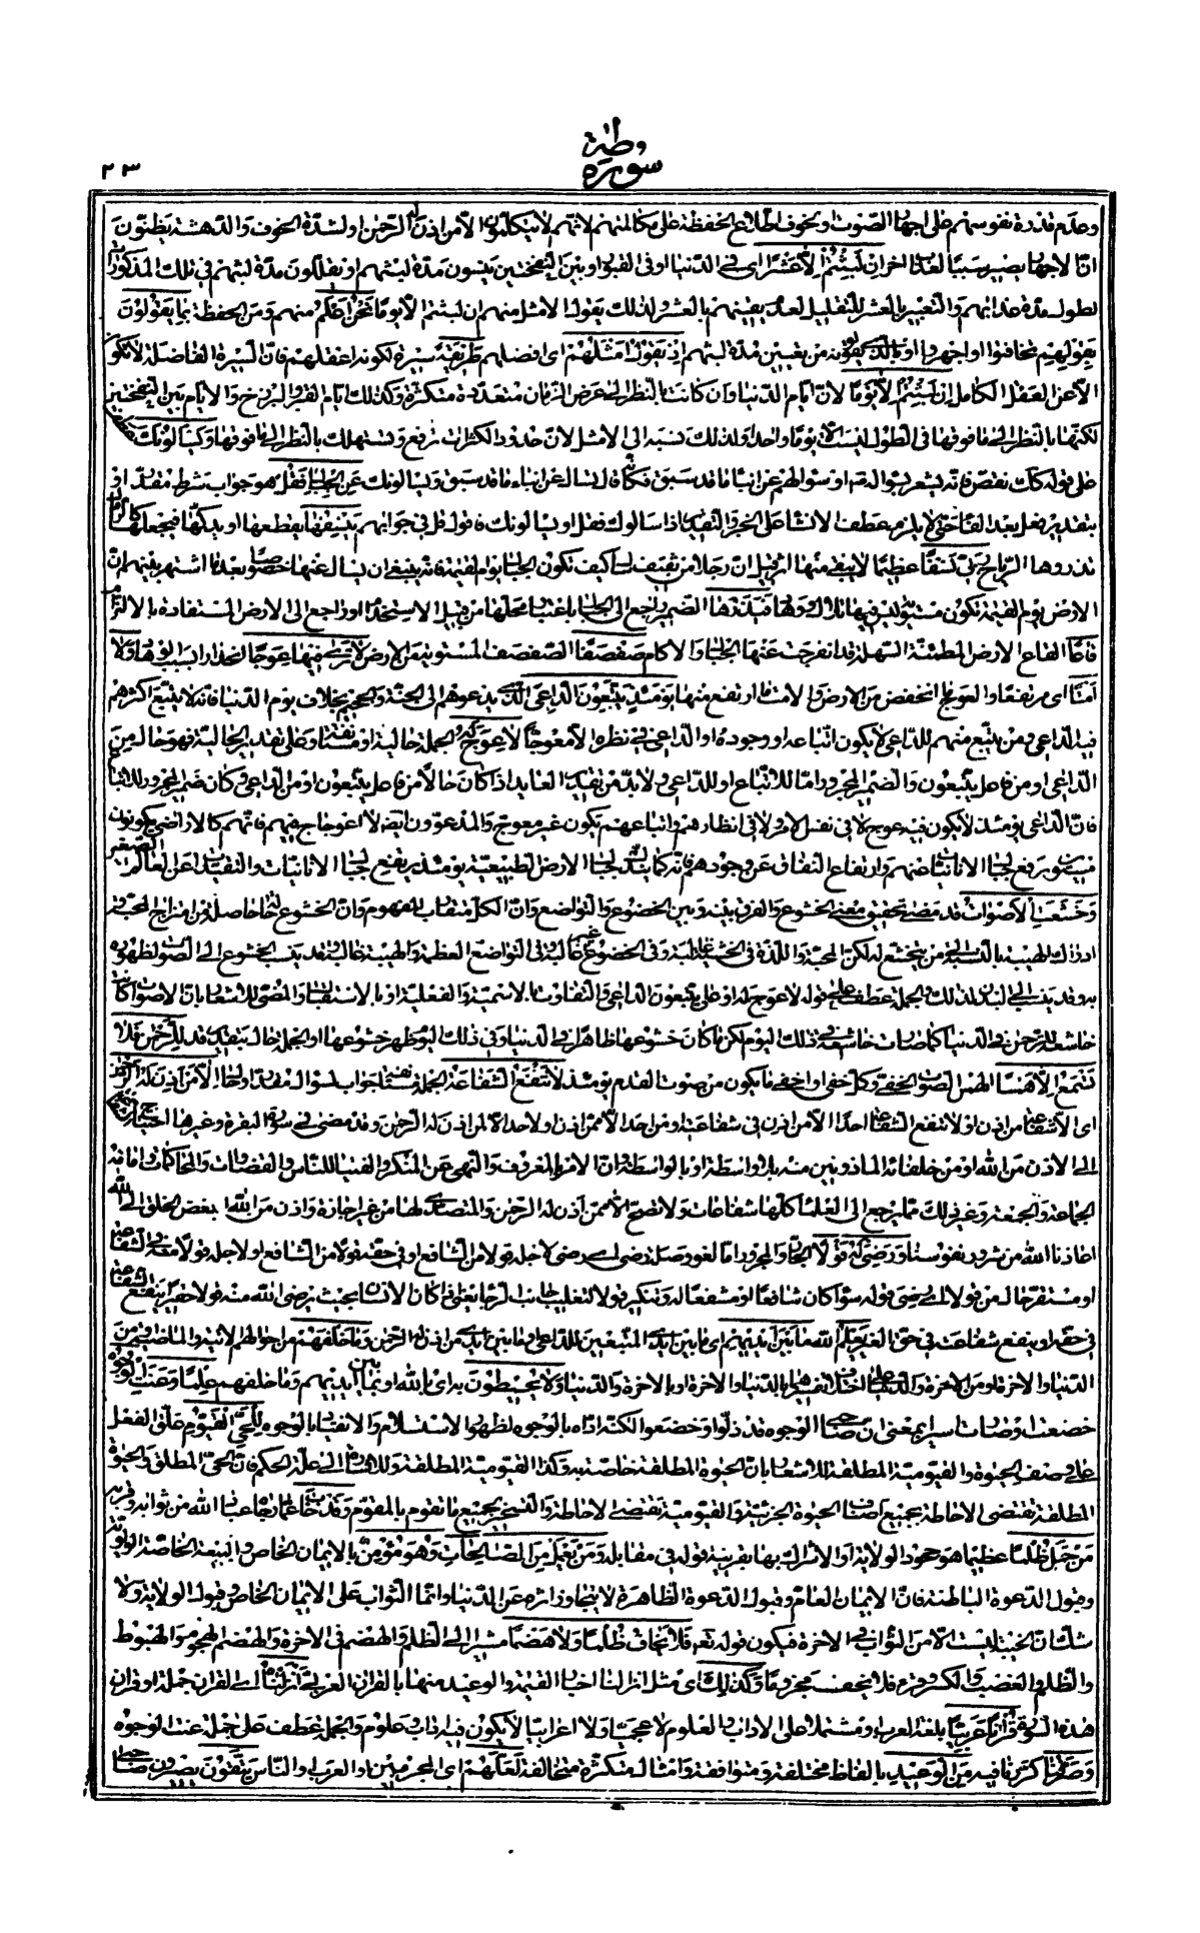 سورة طه
٢٣
وعدم قدرة نفوسهم على اجهار الصوت او لخوف اطلاع الحفظة على مكالمتهم لانهم لا يتكلمون الا من اذن له الرحمن او لشدة الخوف والدهشة يظنون
ان الاجهار يصير سببا لعذاب اخر ان لبثتم الا عشرا اى فى الدنيا او فى القبور او بين النفختين ينسون مدة لبثهم او يقللون مدة لبثهم فى تلك المذكورات
لطول مدة عذابهم والتعبير بالعشر للتقليل لعدم يقينهم بالعشر ولذلك يقول الامثل منهم ان لبثتم الا يوما نحن اعلم منهم ومن الحفظة بما يقولون
بقولهم تخافتوا او اجهروا او بالذى يقولونه من تعيين مدة لبثهم اذ يقول امثلهم اى افضلهم طريقة سيرة لكونه اعقلهم فان السيرة الفاضلة لا تكون
الا عن العقل الكامل ان لبثتم الا يوما لان ايام الدنيا وان كانت بالنظر الى عرض الزمان متعددة متكثرة وكذلك ايام القبر والبرزخ والايام بين النفختين
لكنها بالنظر الى ما فوقها فى الطول ليست الا يوما واحدا ولذلك نسبه الى الامثل لان حدود الكثرات ترفع وتستهلك بالنظر الى ما فوقها ويسألونك عطف
على قوله كذلك نقص فانه يشعر بسؤاله او سؤالهم عن انباء ما قد سبق فكأنه قال يسأل عن انباء ما قد سبق ويسألونك عن الجبال فقل هو جواب شرط مقدر او
بتقدير فعل بعد الفاء حتى لا يلزم عطف الانشاء على الخبر والتقدير اذا سألوك فقل او يسألونك فاقول قل فى جوابهم ينسفها يقطعها او يدكها فيجعلها كالرمال
تذروها الرياح ربى نسفا عظيما لا يبقى منها اثر قيل ان رجلا من ثقيف سأل كيف تكون الجبال يوم القيمة فانه ينبغى ان يسأل عنها خصوصا بعد ما اشتهر بينهم ان
الارض يوم القيمة تكون مستوية ليس فيها تلال ووهاد فيذرها الضمير راجع الى الجبال باعتبار محلها من قبيل الاستخدام او راجع الى الارض المستفادة بالالتزام
قاعا القاع الارض المطمئنة السهلة قد انفرجت عنها الجبال والاكام صفصفا الصفصف المستوى من الارض لا ترى فيها عوجا انحدارا بسبب الوهاد ولا
امتا اى مرتفعا والعوج ما انخفض من الارض والامت ما ارتفع منها يومئذ يتبعون الداعى الذى يدعوهم الى الجنة والجحيم بخلاف يوم الدنيا فانه لا يتبع اكثرهم
فيها الداعى ومن يتبع منهم للداعى لا يكون اتباعه او وجوده او الداعى فى نظره الا معوجا لا عوج له والجملة حالية او مستأنفة وعلى تقدير الحالية فهو حال من
الداعى او من فاعل يتبعون والضمير المجرور اما للاتباع او للداعى ولا بد من تقدير العائد اذا كان حالا من فاعل يتبعون او من الداعى وكان ضمير المجرور للاتباع
فان الداعى يومئذ لا يكون فيه عوج لا فى نفس الامر ولا فى انظارهم واتباعهم يكون غير معوج والمدعوون ايضا لا اعوجاج فيهم فانهم كالاراضى يكونون
وخشعت الاصوات قد مضى تحقيق معنى الخشوع والفرق بينه وبين الخضوع والتواضع وان الكل متقارب المفهوم وان الخشوع حالة حاصلة من امتزاج المحبة و
خاشعة للرحمن فى الدنيا كما صارت خاشعة فى ذلك اليوم لكن ما كان خشوعها ظاهرا فى الدنيا وفى ذلك اليوم ظهر خشوعها او الجملة حال بتقدير قد للرحمن فلا
تسمع الا همسا الهمس الصوت الخفى وكل خفى او اخفى ما يكون من صوت القدم يومئذ لا تنفع الشفاعة الجملة مستأنفة جواب لسؤال مقدر او حال الا من اذن له الرحمن
اى الا شفاعة من اذن او لا تنفع الشفاعة احدا الا من اذن فى شفاعته او من احد الا ممن اذن او لاحد الا لمن اذن له الرحمن وقد مضى فى سورة البقرة وغيرها احتياج الشفاعة
الى الاذن من الله او من خلفائه الماذونين منه بلا واسطة او بالواسطة وان الامر بالمعروف والنهى عن المنكر والفتيا للناس والقضاوات والمحاكمات وامامة
الجماعة والجمعة وغير ذلك مما يرجع الى العلماء كلها شفاعات ولا تصح الا ممن اذن له الرحمن والمتصدى لها من غير اجازة واذن من الله ابغض الخلق الى الله
اعاذنا الله من شرور نفوسنا ورضى له قولا الجار والمجرور اما لغو وصلة رضى اى رضى لاجله قولا من الشافع او فى حقه قولا من الشافع او لاجله قولا منه فى الشفاعة
او مستقر حال من قولا اى رضى قوله سواء كان شافعا او مشفعا له وتنكير قولا لتغليب جانب الرجاء يعنى اذا كان الانسان بحيث يرضى الله منه قولا حقيرا ينفع الشفاعة
فى حقه او ينفع شفاعته فى حق الغير يعلم الله ما بين ايديهم اى ما بين ايدى المتبعين للداعى او ما بين ايدى من اذن له الرحمن وما خلفهم من احوالهم الاتية والماضية من
خضعت او صارت اسيرا بمعنى ان اصحاب الوجوه قد ذلوا وخضعوا لكنه اداه بالوجوه لظهور الاستسلام والانقياد بالوجوه للحى القيوم علق الفعل
على وصف الحيوة والقيومية المطلقة للاشعار بان الحيوة المطلقة خاصة به وكذا القيومية المطلقة وللاشارة الى علة الحكم فان الحى المطلق والحيوة
المطلقة تقتضى الاحاطة بجميع اصناف الحيوة الجزئية والقيومية تقتضى الاحاطة والتسخير بجميع ما تقوم بالمقوم وقد خاب عما رجاه عباد الله من ثوابه وقربه
من حمل ظلما عظيما هو جحود الولاية او الاشراك بها بقرينة قوله فى مقابله ومن يعمل من الصالحات وهو مؤمن بالايمان الخاص والبيعة الخاصة الولوية
وقبول الدعوة الباطنة فان الايمان العام وقبول الدعوة الظاهرة لا يتجاوز اثره عن الدنيا وانما الثواب على الايمان الخاص وقبول الولاية ولا
شك ان الخيبة ليست الا من الثواب فى الاخرة فيكون قوله تعم فلا يخاف ظلما ولا هضما مشيرا الى الظلم والهضم فى الاخرة والهضم الهجوم والهبوط
والظلم والغضب والكسر وقرء فلا يخف مجزوما وكذلك اى مثل انزالنا اخبار القيمة والوعيد منها بالقران العربى انزلناه اى القران جملة او قران
هذه السورة قرانا عربيا بلغة العرب او مشتملا على الاداب والعلوم لا عجميا ولا اعرابيا لا يكون فيه اداب وعلوم والجملة عطف على جملة عنت الوجوه
وصرفنا كررنا فيه من الوعيد بالفاظ مختلفة ومتوافقة وامثال متكثرة متخالفة لعلهم اى المجرمين او العرب او الناس يتقون يصيرون صاحبى